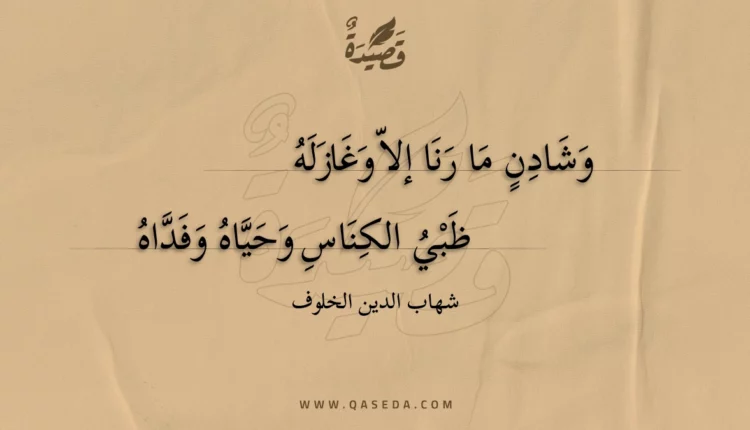 قَصِيْدَةٌ
وَشَادِنٍ مَا رَنَا إلاّ وَغَازَلَهُ
ظَبْيُ الكِنَاسِ وَحَيَّاهُ وَفَدَّاهُ
شهاب الدين الخلوف
WWW.QASEDA.COM